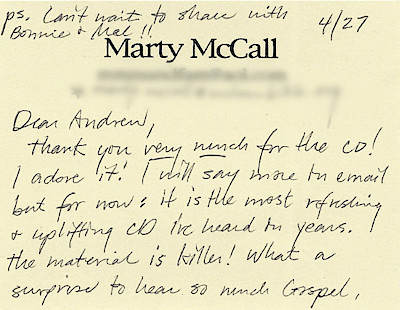 ps. Can't wait to share with
Bonnie & Mel!!
4/27
Marty McCall
Dear Andrew,
Thank you very much for the CD!
I adore it! I will say more in email
but for now: it is the most refreshing
& uplifting CD I've heard in years.
The material is killer! What a
surprise to hear so much Gospel,